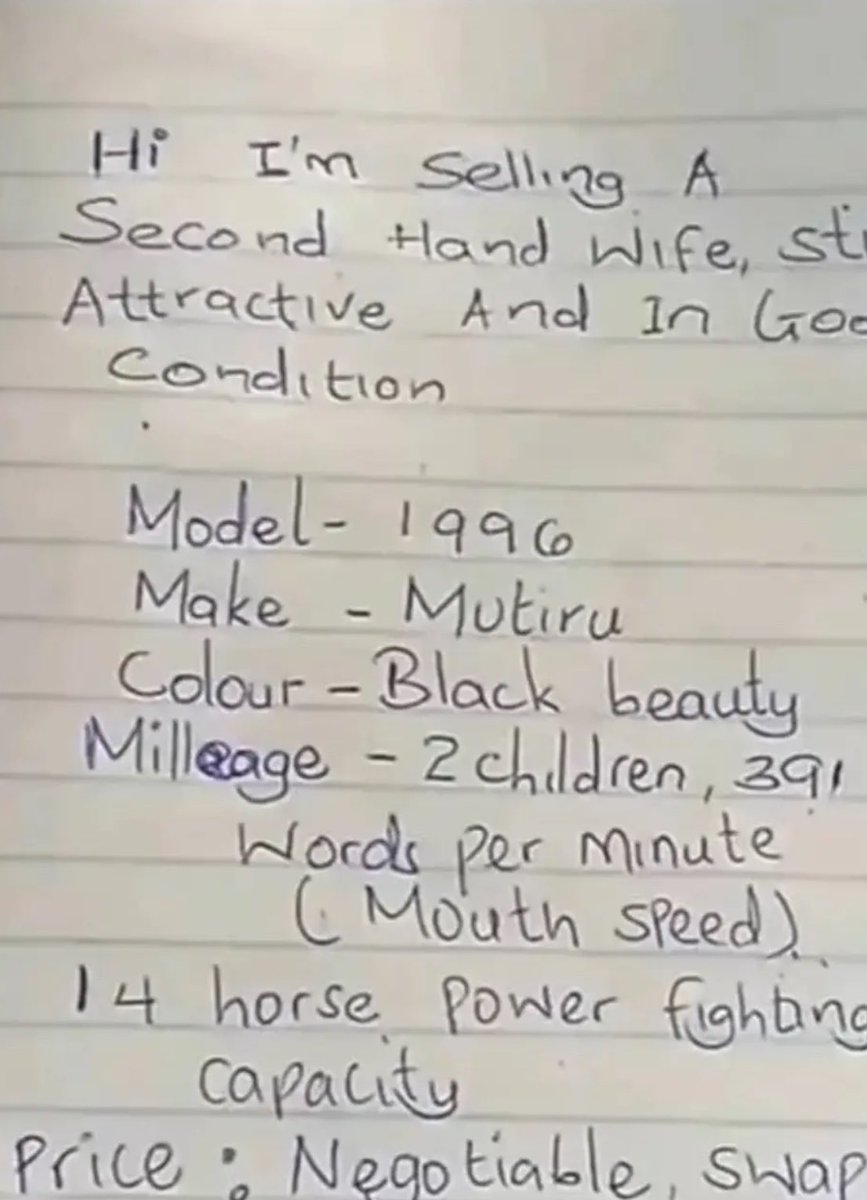 Hi I'm Selling A
Second Hand Wife, sti
Attractive And In Goo
Condition
Model - 1996
Make - Mutiru
Colour - Black beauty
Milleage - 2 children, 391
Words per minute
(Mouth speed)
14 horse power fighting
capacity
Price : Negotiable, swap